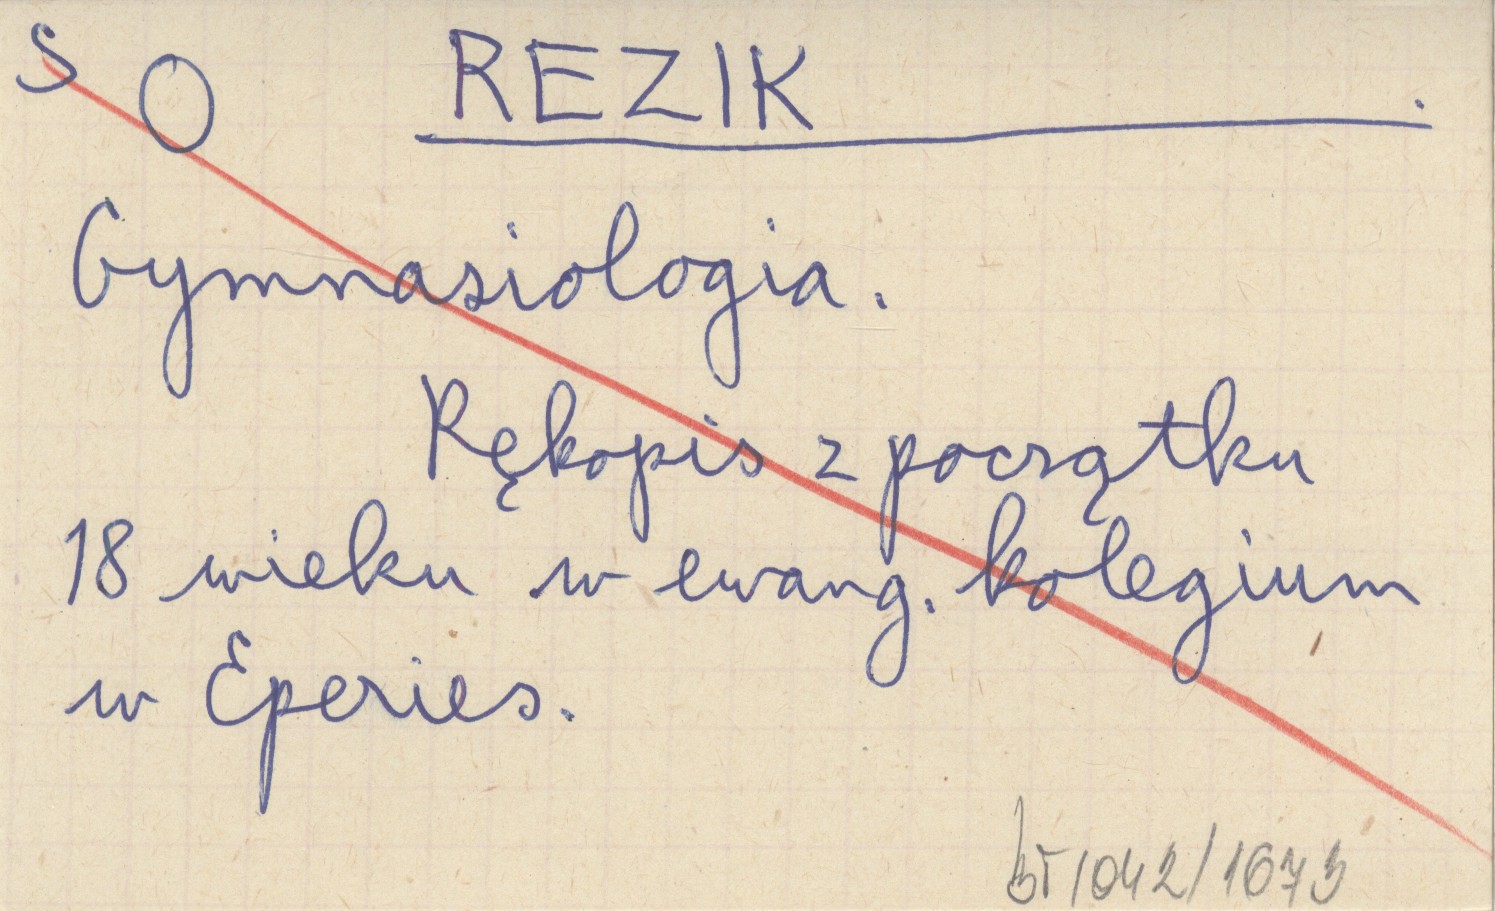 S O REZIK
Gymnasiologia.
Rękopis z początku
18 wieku w ewang. kolegium
w Eperies.
1042/1673